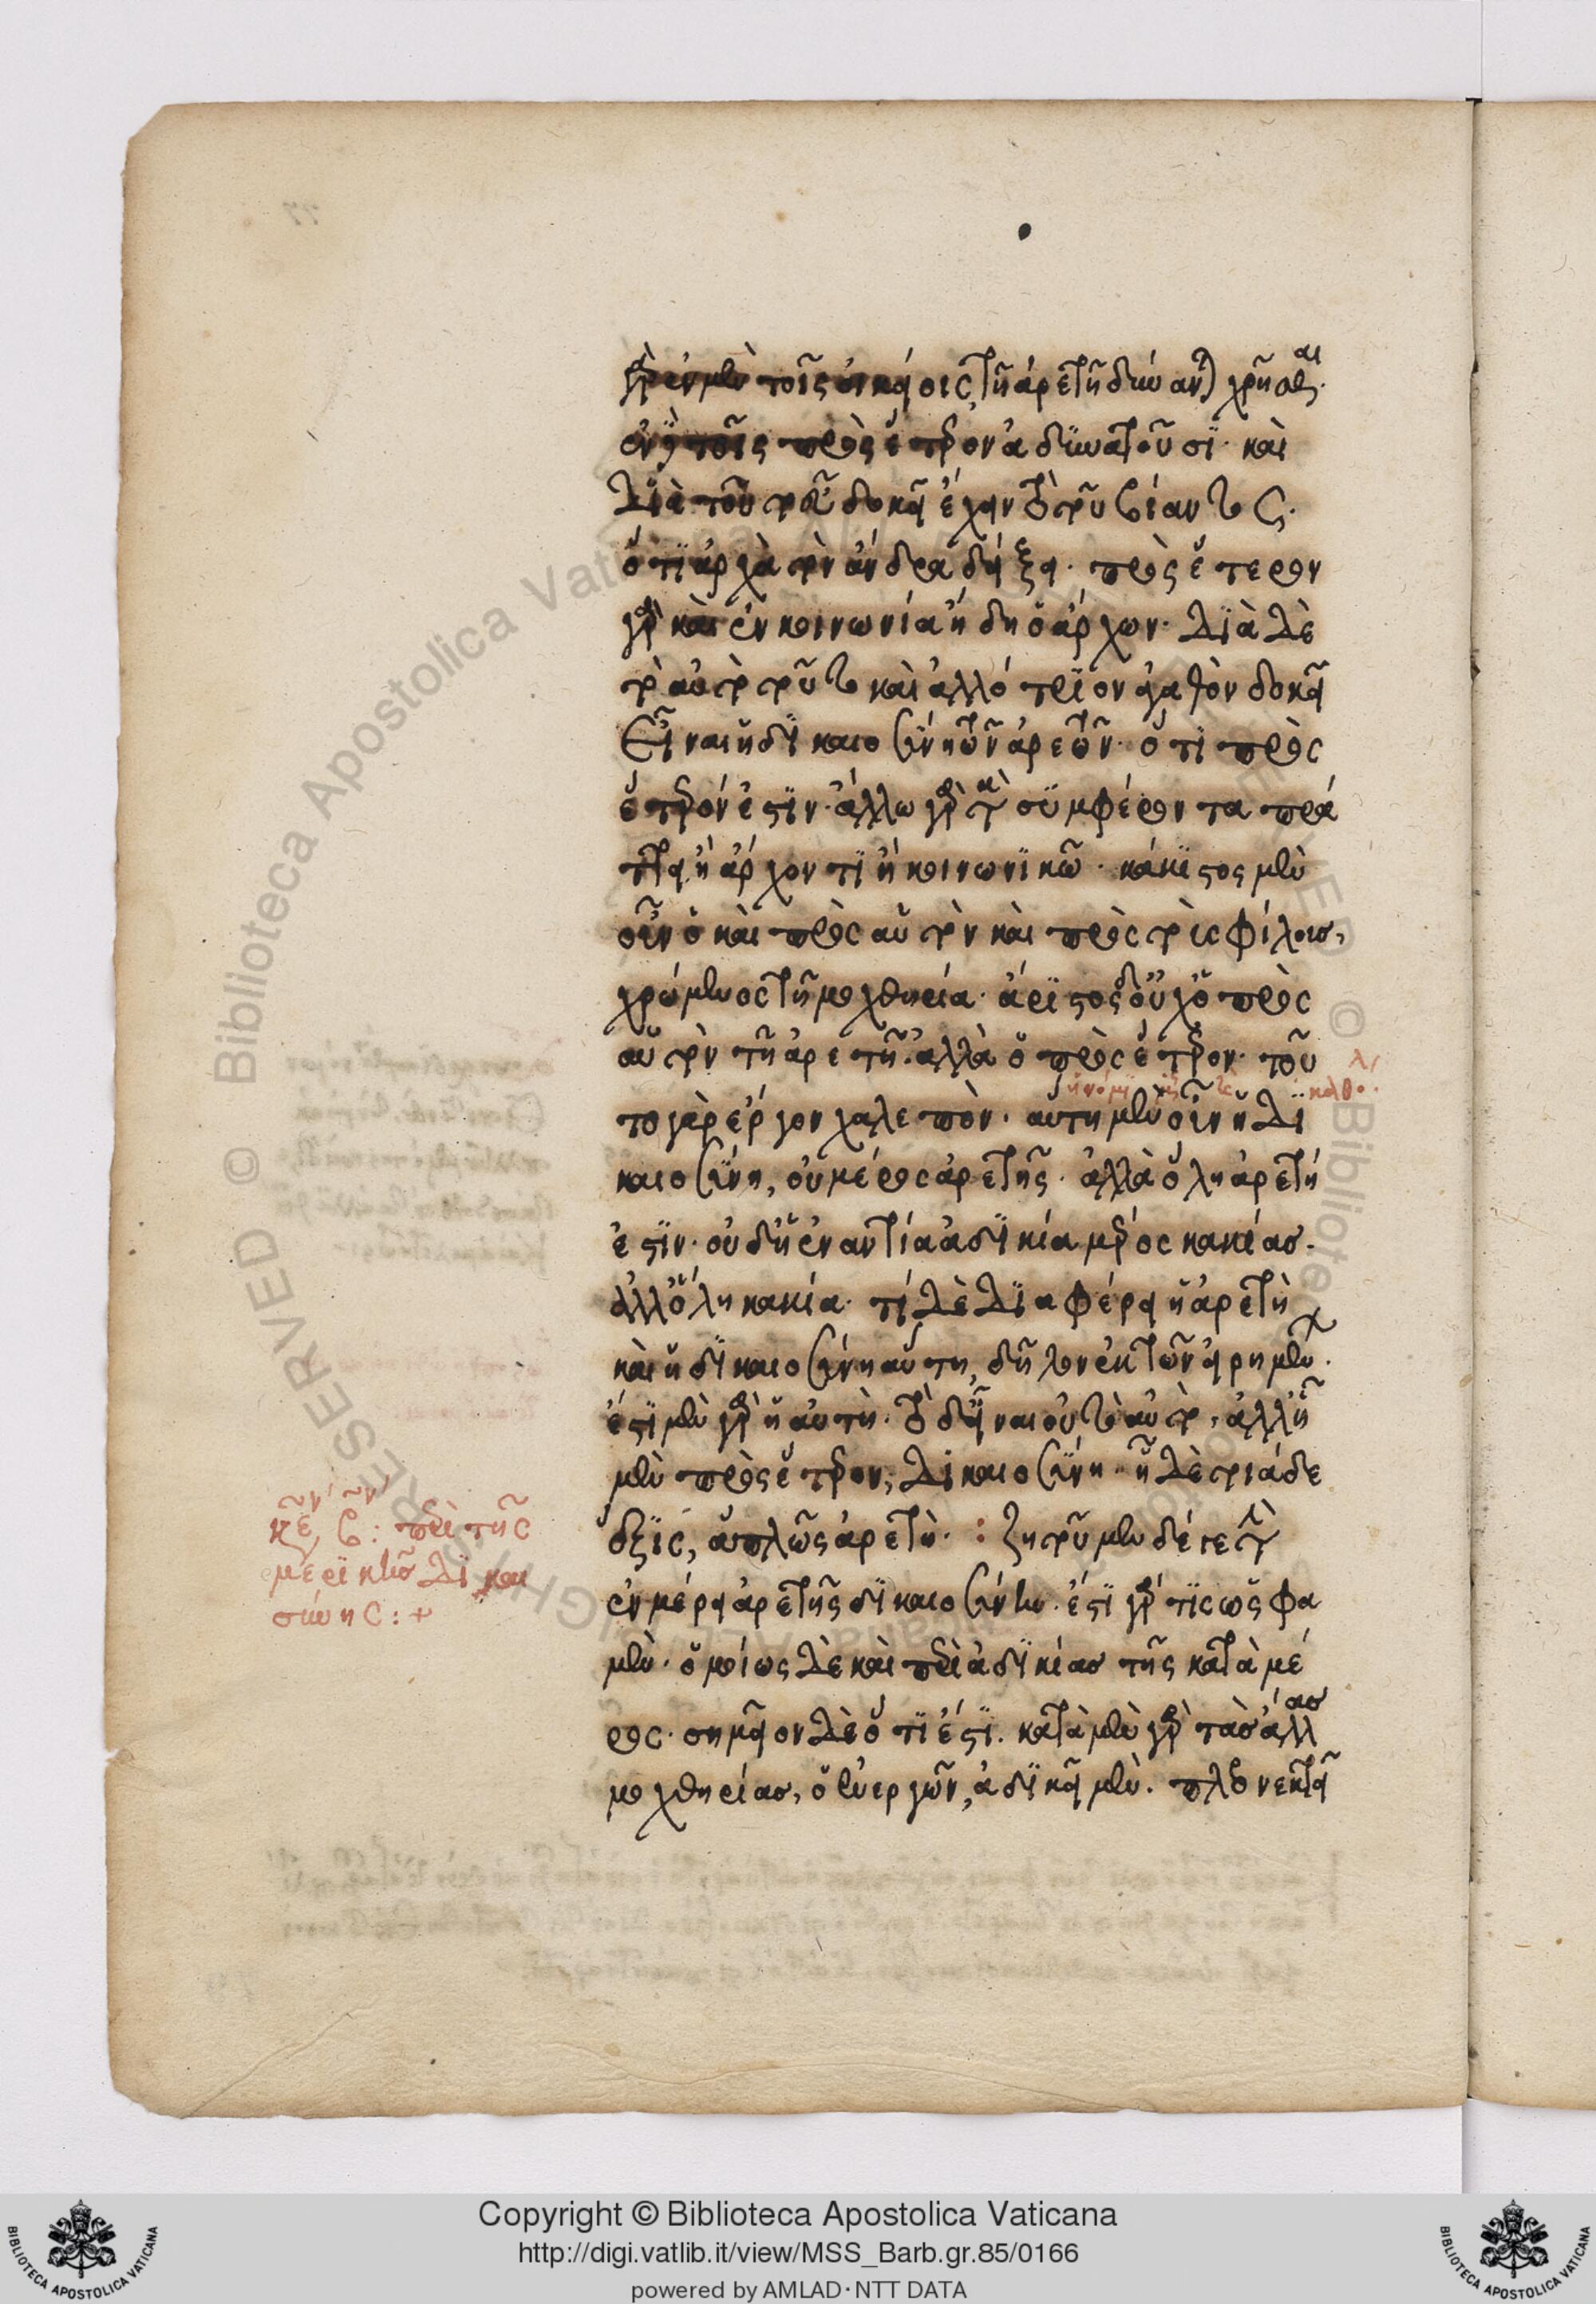 γὰρ ἐν μὲν τοῖς οἰκείοις τῇ ἀρετῇ δύνανται χρῆσθαι·
ἐν δὲ τοῖς πρὸς ἕτερον ἀδυνατοῦσι· καὶ
διὰ τοῦτο εὖ δοκεῖ ἔχειν τὸ τοῦ βίαντος·
ὅτι ἀρχὰ τὸν ἄνδρα δείξει· πρὸς ἕτερον
γὰρ καὶ ἐν κοινωνία ἤδη ὁ ἄρχων· διὰ δὲ
τὸ αὐτὸ τοῦτο καὶ ἀλλότριον ἀγαθὸν δοκεῖ
εἶναι ἡ δικαιοσύνη τῶν ἀρετῶν· ὅτι πρὸς
ἕτερόν ἐστιν· ἄλλω γὰρ τὰ συμφέροντα πρά
ττει ἢ ἄρχοντι ἢ κοινωνικῶ· κάκιστος μὲν
οὖν ὁ καὶ πρὸς αὑτὸν καὶ πρὸς τοὺς φίλους,
χρώμενος τῇ μοχθηρία· ἄριστος δ' οὐχ ὁ πρὸς
αὑτὸν τῇ ἀρετῇ· ἀλλὰ ὁ πρὸς ἕτερον· τοῦ
το γὰρ ἔργον χαλεπὸν· αὕτη μὲν οὖν ἡ δι
καιοσύνη, οὐ μέρος ἀρετῆς· ἀλλὰ ὅλη ἀρετή
ἐστιν· οὐδ' ἡ ἐναντία ἀδικία μέρος κακίας·
ἀλλ' ὅλη κακία· τί δὲ διαφέρει ἡ ἀρετὴ
καὶ ἡ δικαιοσύνη αὕτη, δῆλον ἐκ τῶν εἰρημένων·
ἔστι μὲν γὰρ ἡ αὐτὴ· τὸ δ' εἶναι οὐ τὸ αὐτὸ, ἀλλ' ἧ
μὲν πρὸς ἕτερον, δικαιοσύνη· ἧ δὲ τοιάδε
ἕξις, ἁπλῶς ἀρετὴ· : ζητοῦμεν δέ γε τὴν
ἐν μέρει ἀρετῆς δικαιοσύνην· ἔστι γάρ τις ὥς φα
μὲν· ὁμοίως δὲ καὶ περὶ ἀδικίας τῆς κατὰ μέ
ρος· σημεῖον δὲ ὅτι ἔστι· κατὰ μὲν γὰρ τὰς ἄλλας
μοχθηρίας, ὁ ἐνεργῶν, ἀδικεῖ μὲν· πλεονεκτεῖ
περὶ τῆς
μερικῆς δικαι
οσύνης : +
Copyright © Biblioteca Apostolica Vaticana
http://digi.vatlib.it/view/MSS_Barb.gr.85/0166
powered by AMLAD·NTT DATA